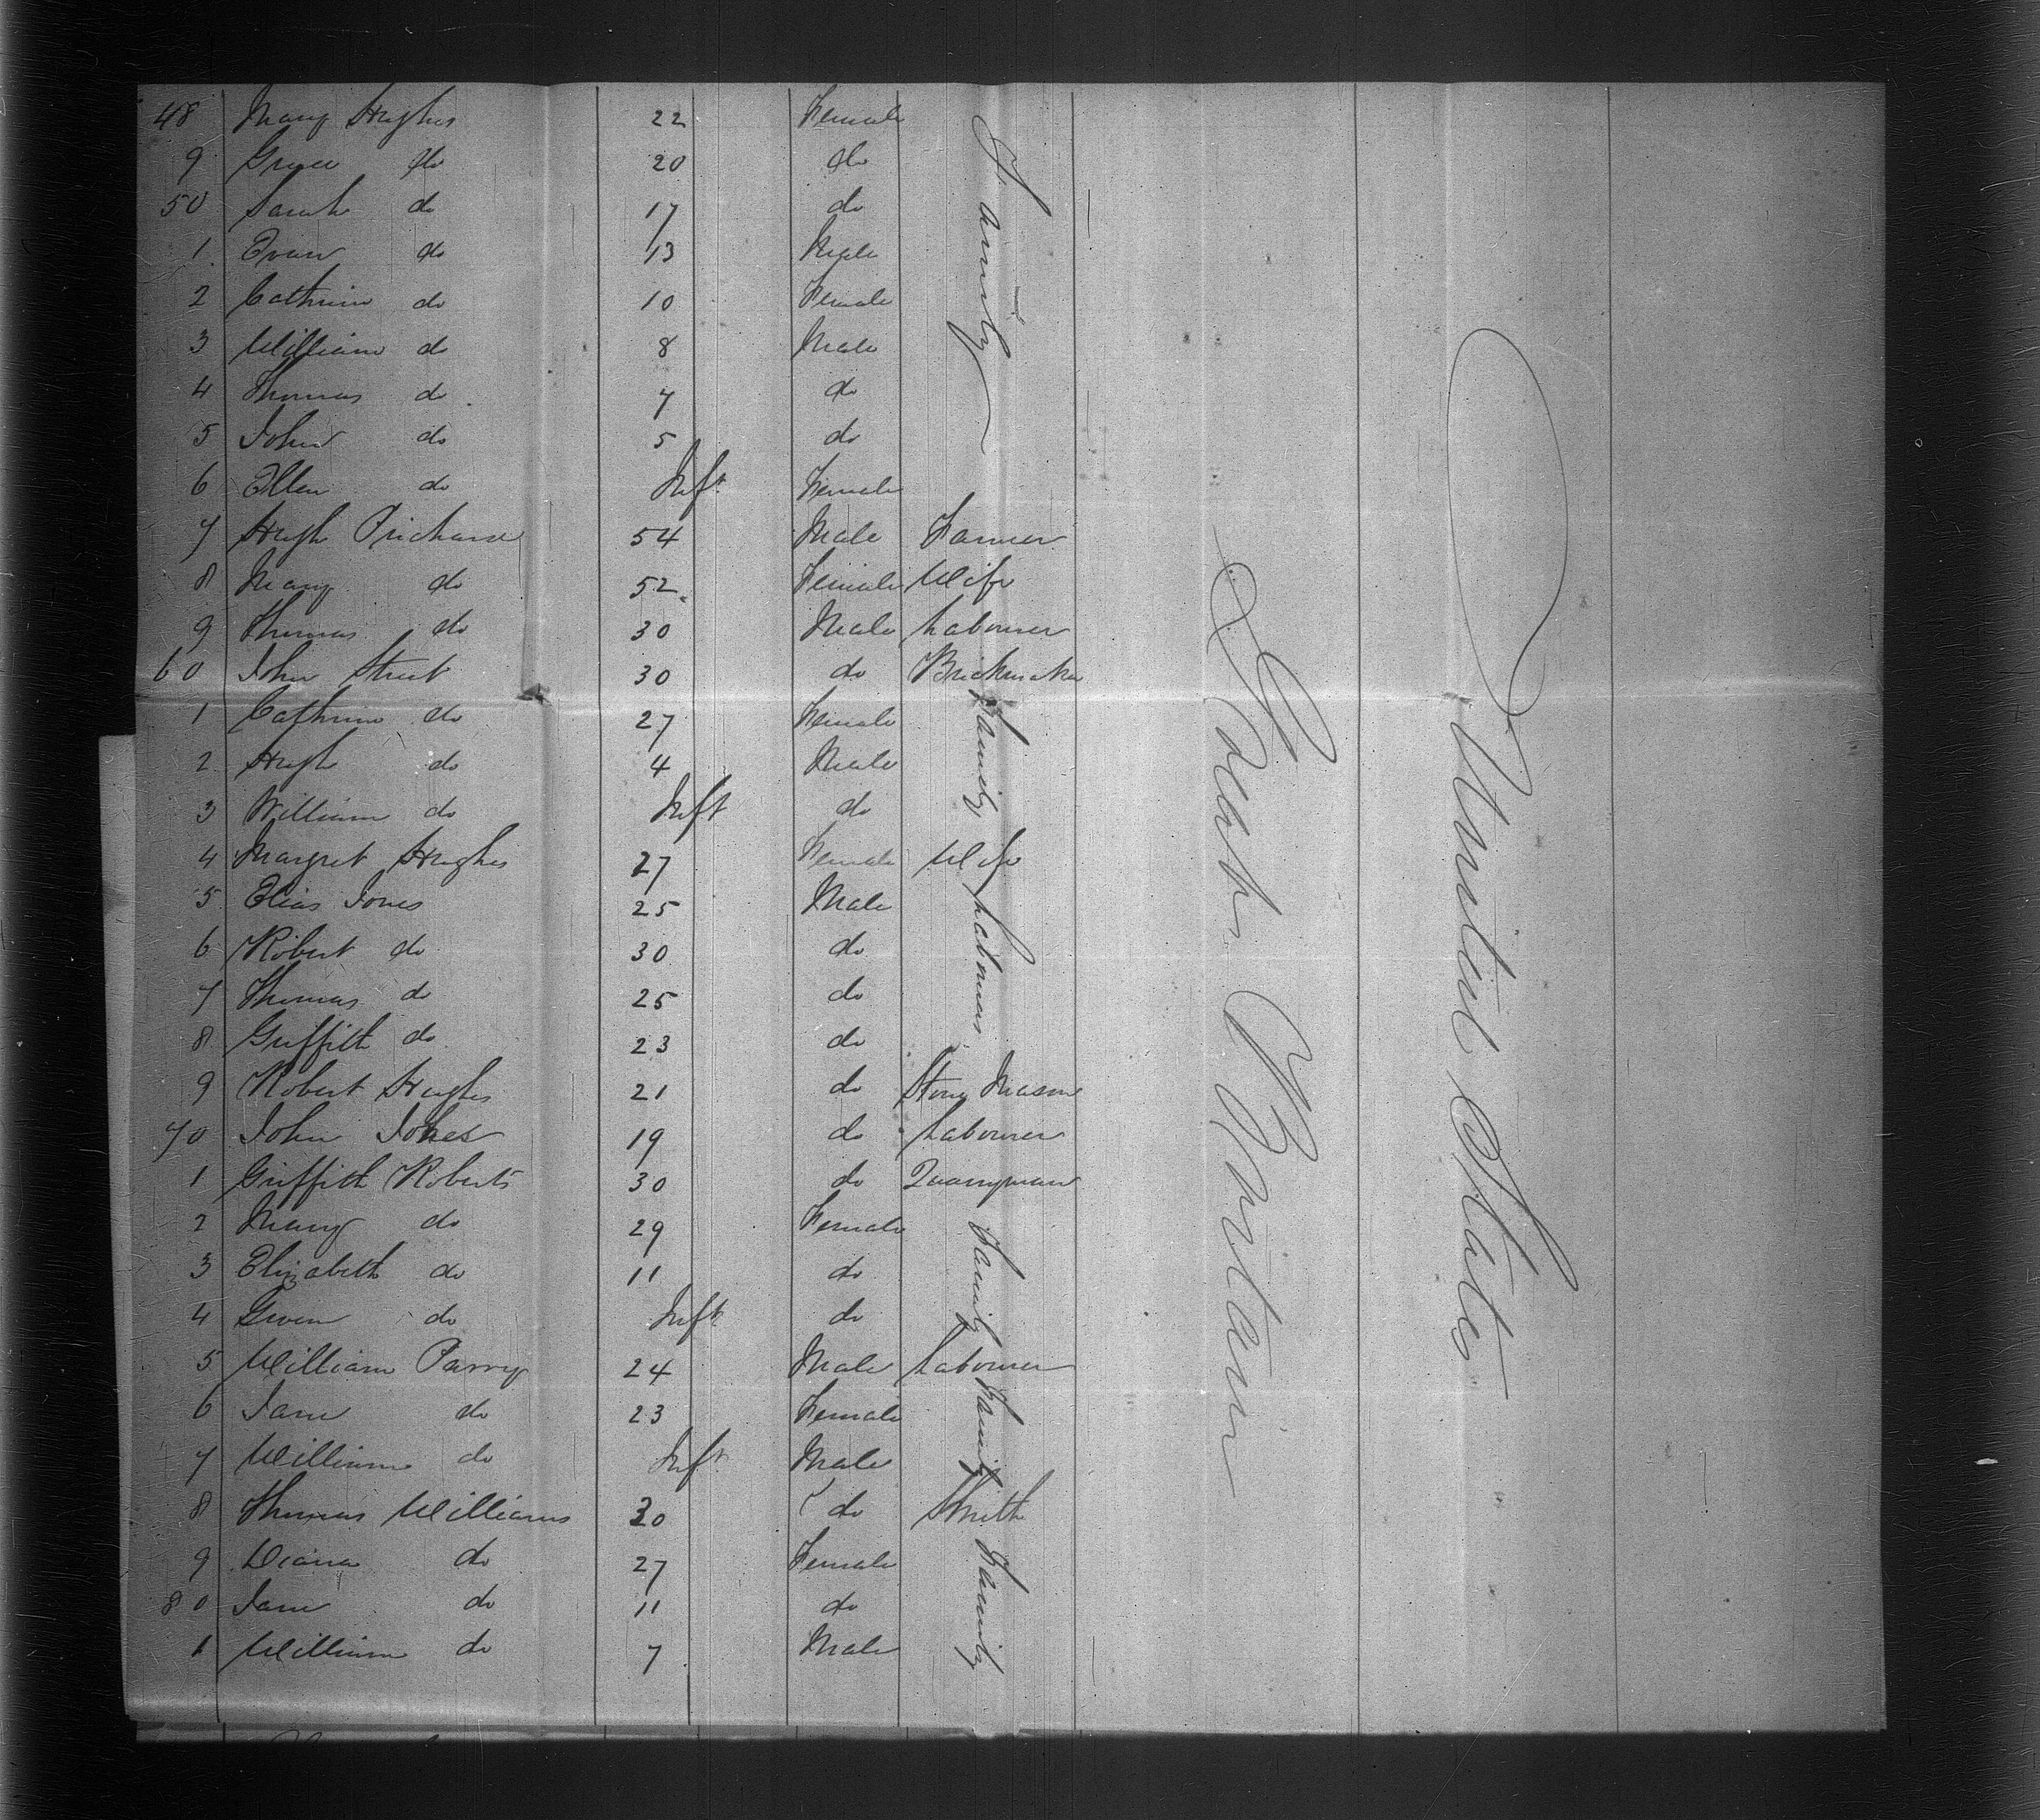 48 Mary Hughes 22 Female
9 Grace do 20 do
50 Sarah do 17 do
1 Evan do 13 Male
2 Cathrine do 10 Female
3 William do 8 Male
4 Thomas do 7 do
5 John do 5 do
6 Ellen do Inft Female
Family
7 Hugh Prichard 54 Male Farmer
8 Mary do 52 Female Wife
9 Thomas do 30 Male Labourer
60 John Street 30 do Brickmaker
1 Cathrine do 27 Female
2 Hugh do 4 Male
3 William do Inft do
Family
4 Margret Hughes 27 Female Wife
5 Elias Jones 25 Male
6 Robert do 30 do
7 Thomas do 25 do
8 Griffith do 23 do
Labourers
9 Robert Hughes 21 do Stone Mason
70 John Jones 19 do Labourer
1 Griffith Roberts 30 do Quarryman
2 Mary do 29 Female
3 Elizabeth do 11 do
4 Gwen do Inft do
Family
5 William Parry 24 Male Labourer
6 Jane do 23 Female
7 William do Inft Male
Family
8 Thomas Williams 30 do Smith
9 Diana do 27 Female
80 Jane do 11 do
1 William do 7 Male
Family
Great Britain
United States